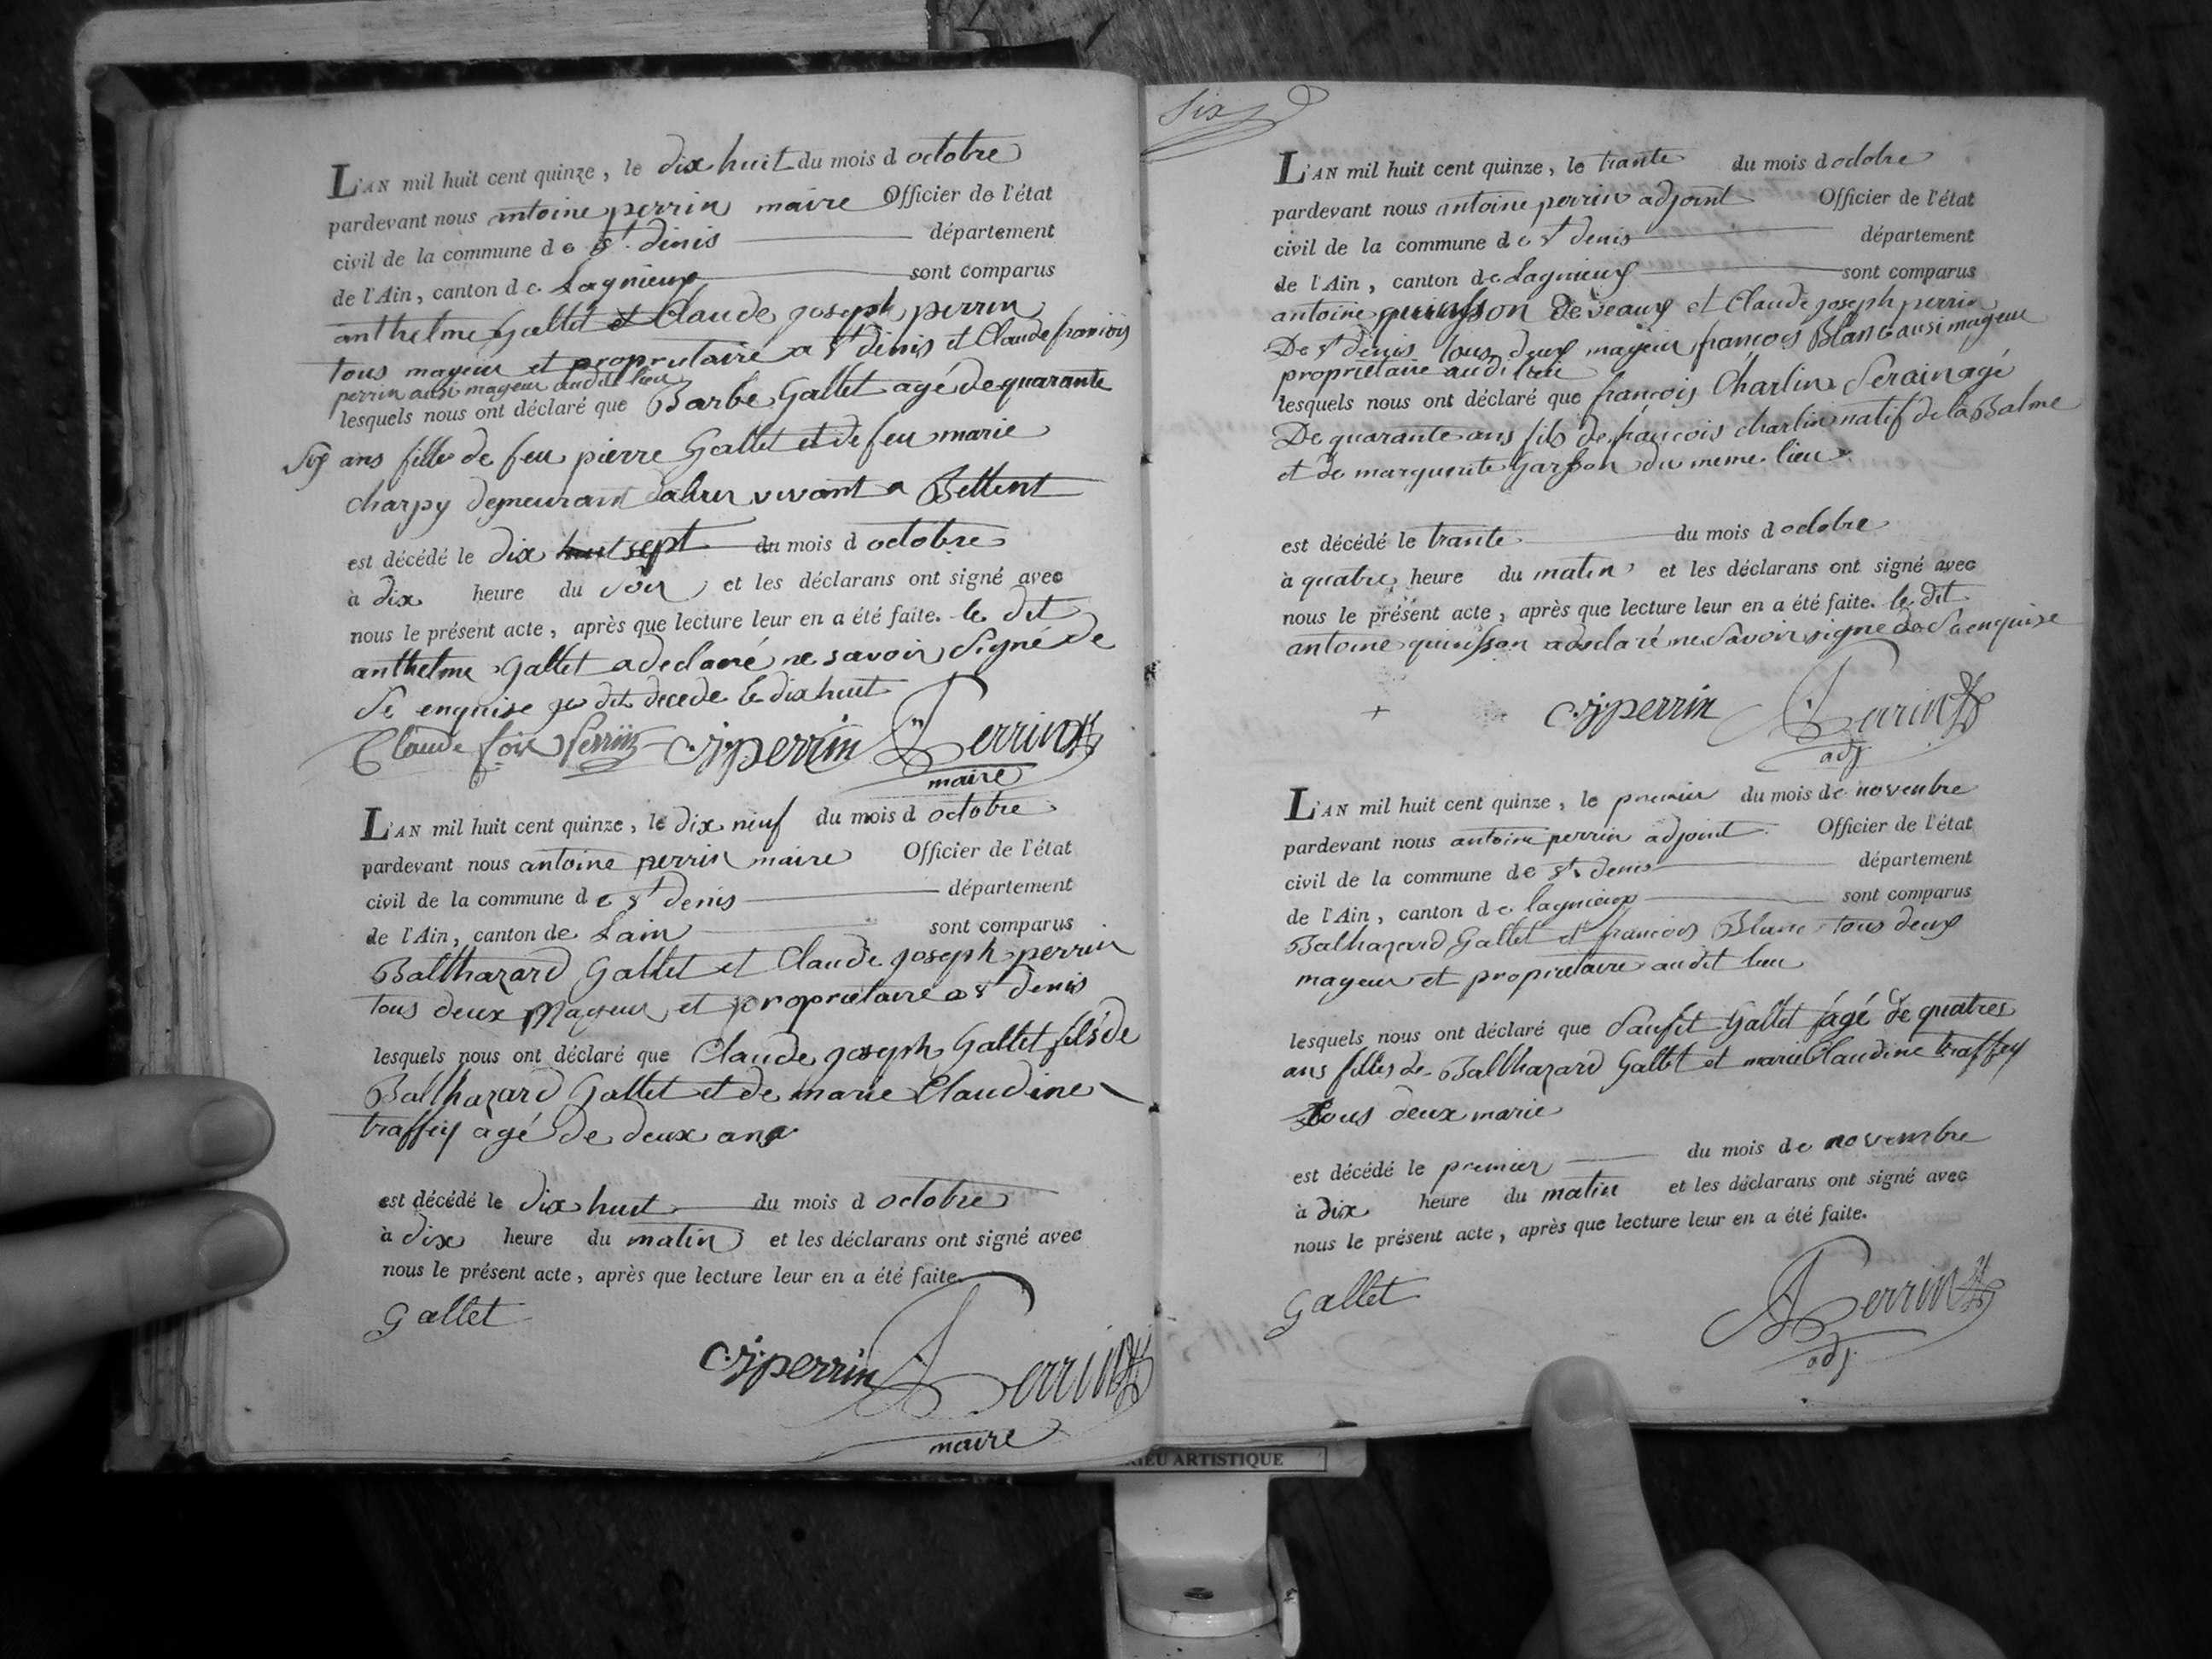 L'AN mil huit cent quinze, le dix huit du mois d octobre
pardevant nous antoine perrin maire Officier de l'état
civil de la commune de St. denis département
de l'Ain, canton de Lagnieux sont comparus
anthelme Gallet et Claude joseph perrin
tous mageur et propriétaire a St denis et Claude francois
perrin ausi mageur audit lieu
lesquels nous ont déclaré que Barbe Gallet agé de quarante
Six ans fille de feu pierre Gallet et de feu marie
charpy demeurant vivant a Bettent
est décédé le dix huit sept du mois d octobre
à dix heure du soir et les déclarans ont signé avec
nous le présent acte, après que lecture leur en a été faite. le dit
anthelme Gallet a declaré ne savoir Signé de
Se enquise je dit decede le dix huit
Claude fois Perrin cjperrin Perrin
maire
L'AN mil huit cent quinze, le dix neuf du mois d octobre
pardevant nous antoine perrin maire Officier de l'état
civil de la commune de St denis département
de l'Ain, canton de Lain sont comparus
Balthazard Gallet et Claude joseph perrin
tous deux Mageur et propriétaire a St denis
lesquels nous ont déclaré que Claude joseph Gallet fils de
Balthazard Gallet et de marie Claudine
traffey agé de deux ans
est décédé le dix huit du mois d octobre
à dix heure du matin et les déclarans ont signé avec
nous le présent acte, après que lecture leur en a été faite.
Gallet
cjperrin Perrin
maire
Six
L'AN mil huit cent quinze, le trante du mois d octobre
pardevant nous antoine perrin adjoint Officier de l'état
civil de la commune de St denis département
de l'Ain, canton de Lagnieux sont comparus
antoine quinsson de veaux et Claude joseph perrin
De St denis tous deux mageur francois Blanc ausi mageur
propriétaire audit lieu
lesquels nous ont déclaré que françois Charlin Serain agé
De quarante ans fils de francois charlin natif de la Balme
et de marguerite Garsson du meme lieu
est décédé le trante du mois d octobre
à quatre heure du matin et les déclarans ont signé avec
nous le présent acte, après que lecture leur en a été faite. le dit
antoine quinsson a declaré ne Savoir signe de Sa enquise
+ cjperrin Perrin
adj
L'AN mil huit cent quinze, le premier du mois de novenbre
pardevant nous antoine perrin adjoint Officier de l'état
civil de la commune de St denis département
de l'Ain, canton de lagnieux sont comparus
Balthazard Gallet et francois Blanc tous deux
mageur et propriétaire audit lieu
lesquels nous ont déclaré que Gallet agé de quatres
ans filles de Balthazard Gallet et marie Claudine traffey
Tous deux marié
est décédé le premier du mois de novembre
à dix heure du matin et les déclarans ont signé avec
nous le présent acte, après que lecture leur en a été faite.
Gallet Perrin
adj
IEU ARTISTIQUE